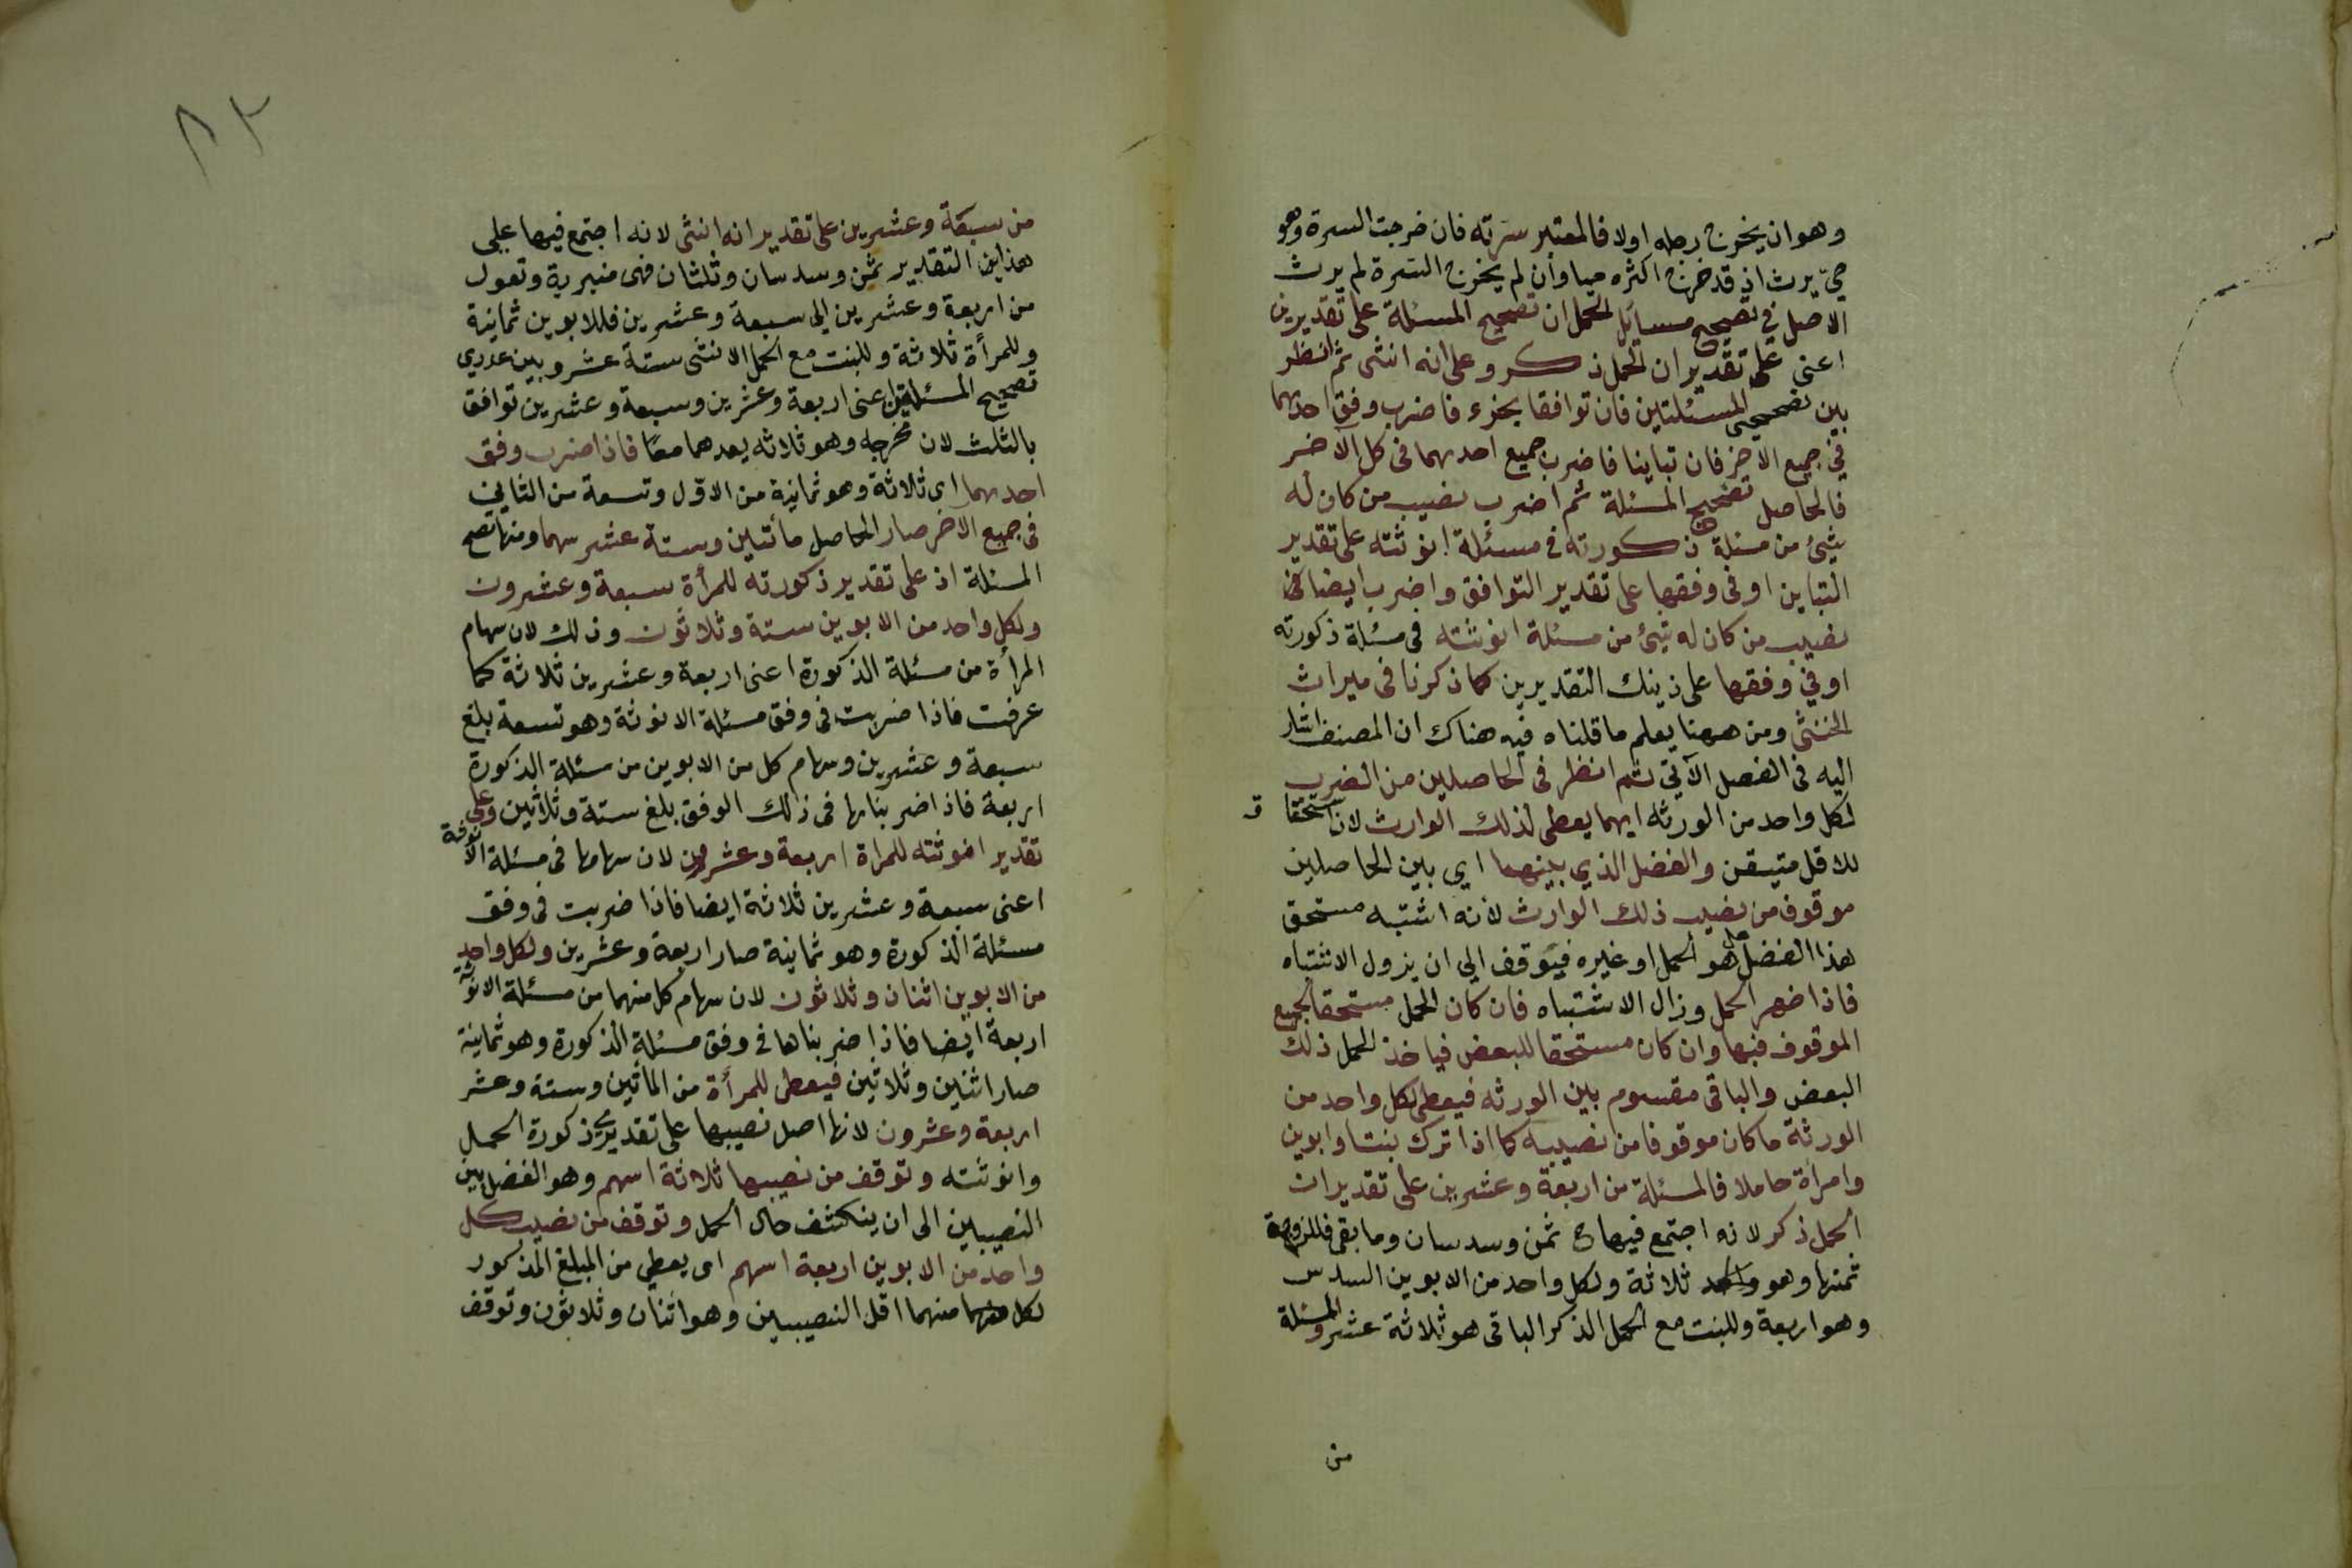 وهو ان يخرج رجله اولا فالمعتبر سرته فان خرجت السرة وهو
حي يرث اذ قد خرج اكثره حيا وان لم يخرج السرة لم يرث
الاصل في تصحيح مسائل الحمل ان تصحح المسئلة على تقديرين
اعنى على تقدير ان الحمل ذكر وعلى انه انثى ثم انظر
بين تصحيحى المسئلتين فان توافقا بجزء فاضرب وفق احدهما
في جميع الاخر فان تباينا فاضرب جميع احدهما فى كل الآخر
فالحاصل تصحيح المسئلة ثم اضرب نصيب من كان له
شيئ من مسئلة ذكورته فى مسئلة انوثته على تقدير
التباين او فى وفقها على تقدير التوافق واضرب ايضا
نصيب من كان له شيئ من مسئلة انوثته فى مسئلة ذكورته
او في وفقها على ذينك التقديرين كما ذكرنا فى ميراث
الخنثى ومن ههنا يعلم ما قلناه فيه هناك ان المصنف اشار
اليه فى الفصل الآتي ثم انظر فى الحاصلين من الضرب
لكل واحد من الورثه ايهما يعطى لذلك الوارث لان استحقا ق
للاقل متيقن والفضل الذي بينهما اي بين الحاصلين
موقوف من نصيب ذلك الوارث لأنه اشتبه مستحق
هذا الفضل هل هو الحمل او غيره فيتوقف الى ان يزول الاشتباه
فاذا ضهر الحمل وزال الاشتباه فان كان الحمل مستحقا لجميع
الموقوف فبها وان كان مستحقا للبعض فياخذ الحمل ذلك
البعض والباقى مقسوم بين الورثه فيعطى لكل واحد من
الورثة ما كان موقوفا من نصيبه كما اذا ترك بنتا وابوين
وامرأة حاملا فالمسئلة من اربعة وعشرين على تقدير ان
الحمل ذكر لانه اجتمع فيها ح ثمن وسدسان وما بقى فللزوجة
ثمنها وهو ثلاثة ولكل واحد من الابوين السدس
وهو اربعة وللبنت مع الحمل الذكر الباقى هو ثلاثة عشر والمسئلة
من
٨٢
من سبعة وعشرين على تقدير انه انثى لانه اجتمع فيها على
هذا التقدير ثمن وسدسان وثلثان فهى منبرية وتعول
من اربعة وعشرين الى سبعة وعشرين فللابوين ثمانية
وللمرأة ثلاثة وللبنت مع الحمل الانثى ستة عشر وبين عددي
تصحيح المسئلتين اعنى اربعة وعشرين وسبعة وعشرين توافق
بالثلث لان مخرجه وهو ثلاثه يعدهما معًا فاذا ضرب وفق
احدهما اى ثلاثة وهو ثمانية من الاوّل وتسعة من الثاني
فى جميع الاخر صار الحاصل مأتين وستة عشر سهما ومنها تصح
المسئلة اذ على تقدير ذكورته للمرأة سبعة وعشرون
ولكل واحد من الابوين ستة وثلاثون وذلك لان سهام
المرأة من مسئلة الذكورة اعنى اربعة وعشرين ثلاثة كما
عرفت فاذا ضربت فى وفق مسئلة الانوثة وهو تسعة بلغ
سبعة وعشرين وسهام كل من الابوين من مسئلة الذكورة
اربعة فاذا ضربناها فى ذلك الوفق بلغ ستة وثلاثين وعلى
تقدير انوثته للمراة اربعة وعشرون لان سهامها فى مسئلة الانوثة
اعنى سبعة وعشرين ثلاثة ايضا فاذا ضربت فى وفق
مسئلة الذكورة وهو ثمانية صار اربعة وعشرين ولكل واحد
من الابوين اثنان وثلاثون لان سهام كل منهما من مسئلة الانوثة
اربعة ايضا فاذا ضربناها فى وفق مسئلة الذكورة وهو ثمانية
صار اثنين وثلاثين فيعطى للمرأة من المأتين وستة وعشر
اربعة وعشرون لانها اصل نصيبها على تقديرى ذكورة الحمل
وانوثته وتوقف من نصيبها ثلاثة اسهم وهو الفضل بين
النصيبين الى ان ينكشف حال الحمل وتوقف من نصيب كل
واحد من الابوين اربعة اسهم اى يعطي من المبلغ المذكور
لكل منهما اقل النصيبين وهو اثنان وثلاثون وتوقف